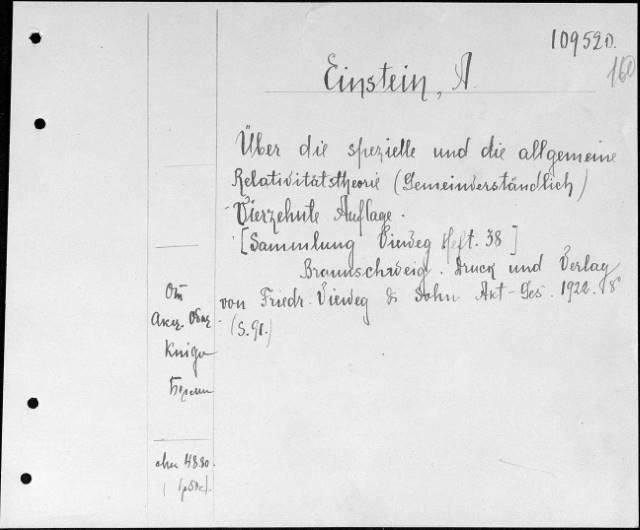 10952D.
160
Einstein, A.
Über die spezielle und die allgemeine
Relativitätstheorie (Gemeinverständlich)
Vierzehnte Auflage.
[Sammlung Vieweg Heft. 38]
Braunschweig. Druck und Verlag
von Friedr. Vieweg & Sohn Akt-Ges. 1922. 8°
(S. 91.)
От
Книга